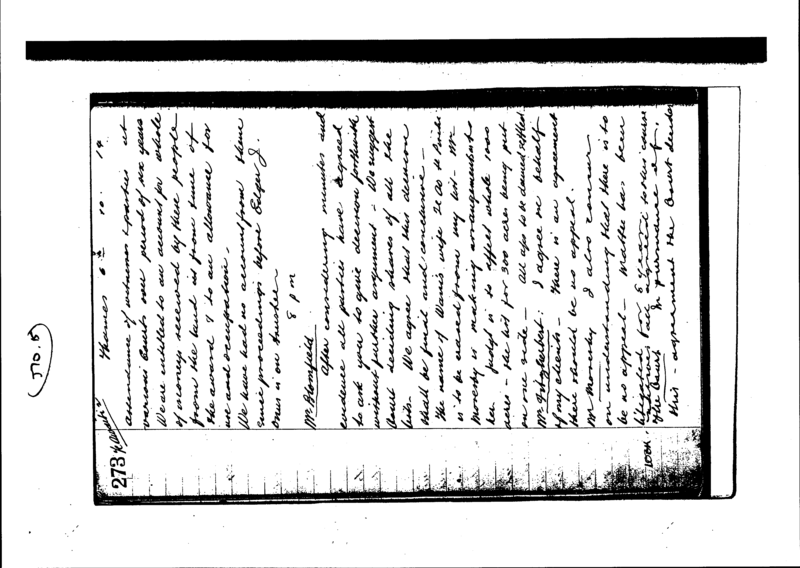 273
Thames 10. 14
attendance of witnesses & parties at
various Courts over period of six years
We are entitled to an account for whole
of moneys received by these people
from the land is from time of
the award & to an allowance for
use and occupation.
We have had no account from them
since proceedings before Edger J.
Onus is on trustee
8 pm
Mr
After considering minutes and
evidence all parties have agreed
to ask you to give decision forthwith
without further argument – We suggest
Court deciding shares of all the
lists. We agree that this decision
shall be final and conclusive –
The name of wife
is to be erased from my list – Mr
is making arrangements
her is to affect whole 1000
acres – the list for 300 acres being put
on one side – All to be settled
Mr : I agree on behalf
of my clients – There is an agreement
there should be no appeal.
Mr I also concur
on understanding that there is to
be no appeal – Matter has been
litigated for 6 years
of the Courts In pursuance of
this agreement the Court
(J70.8)